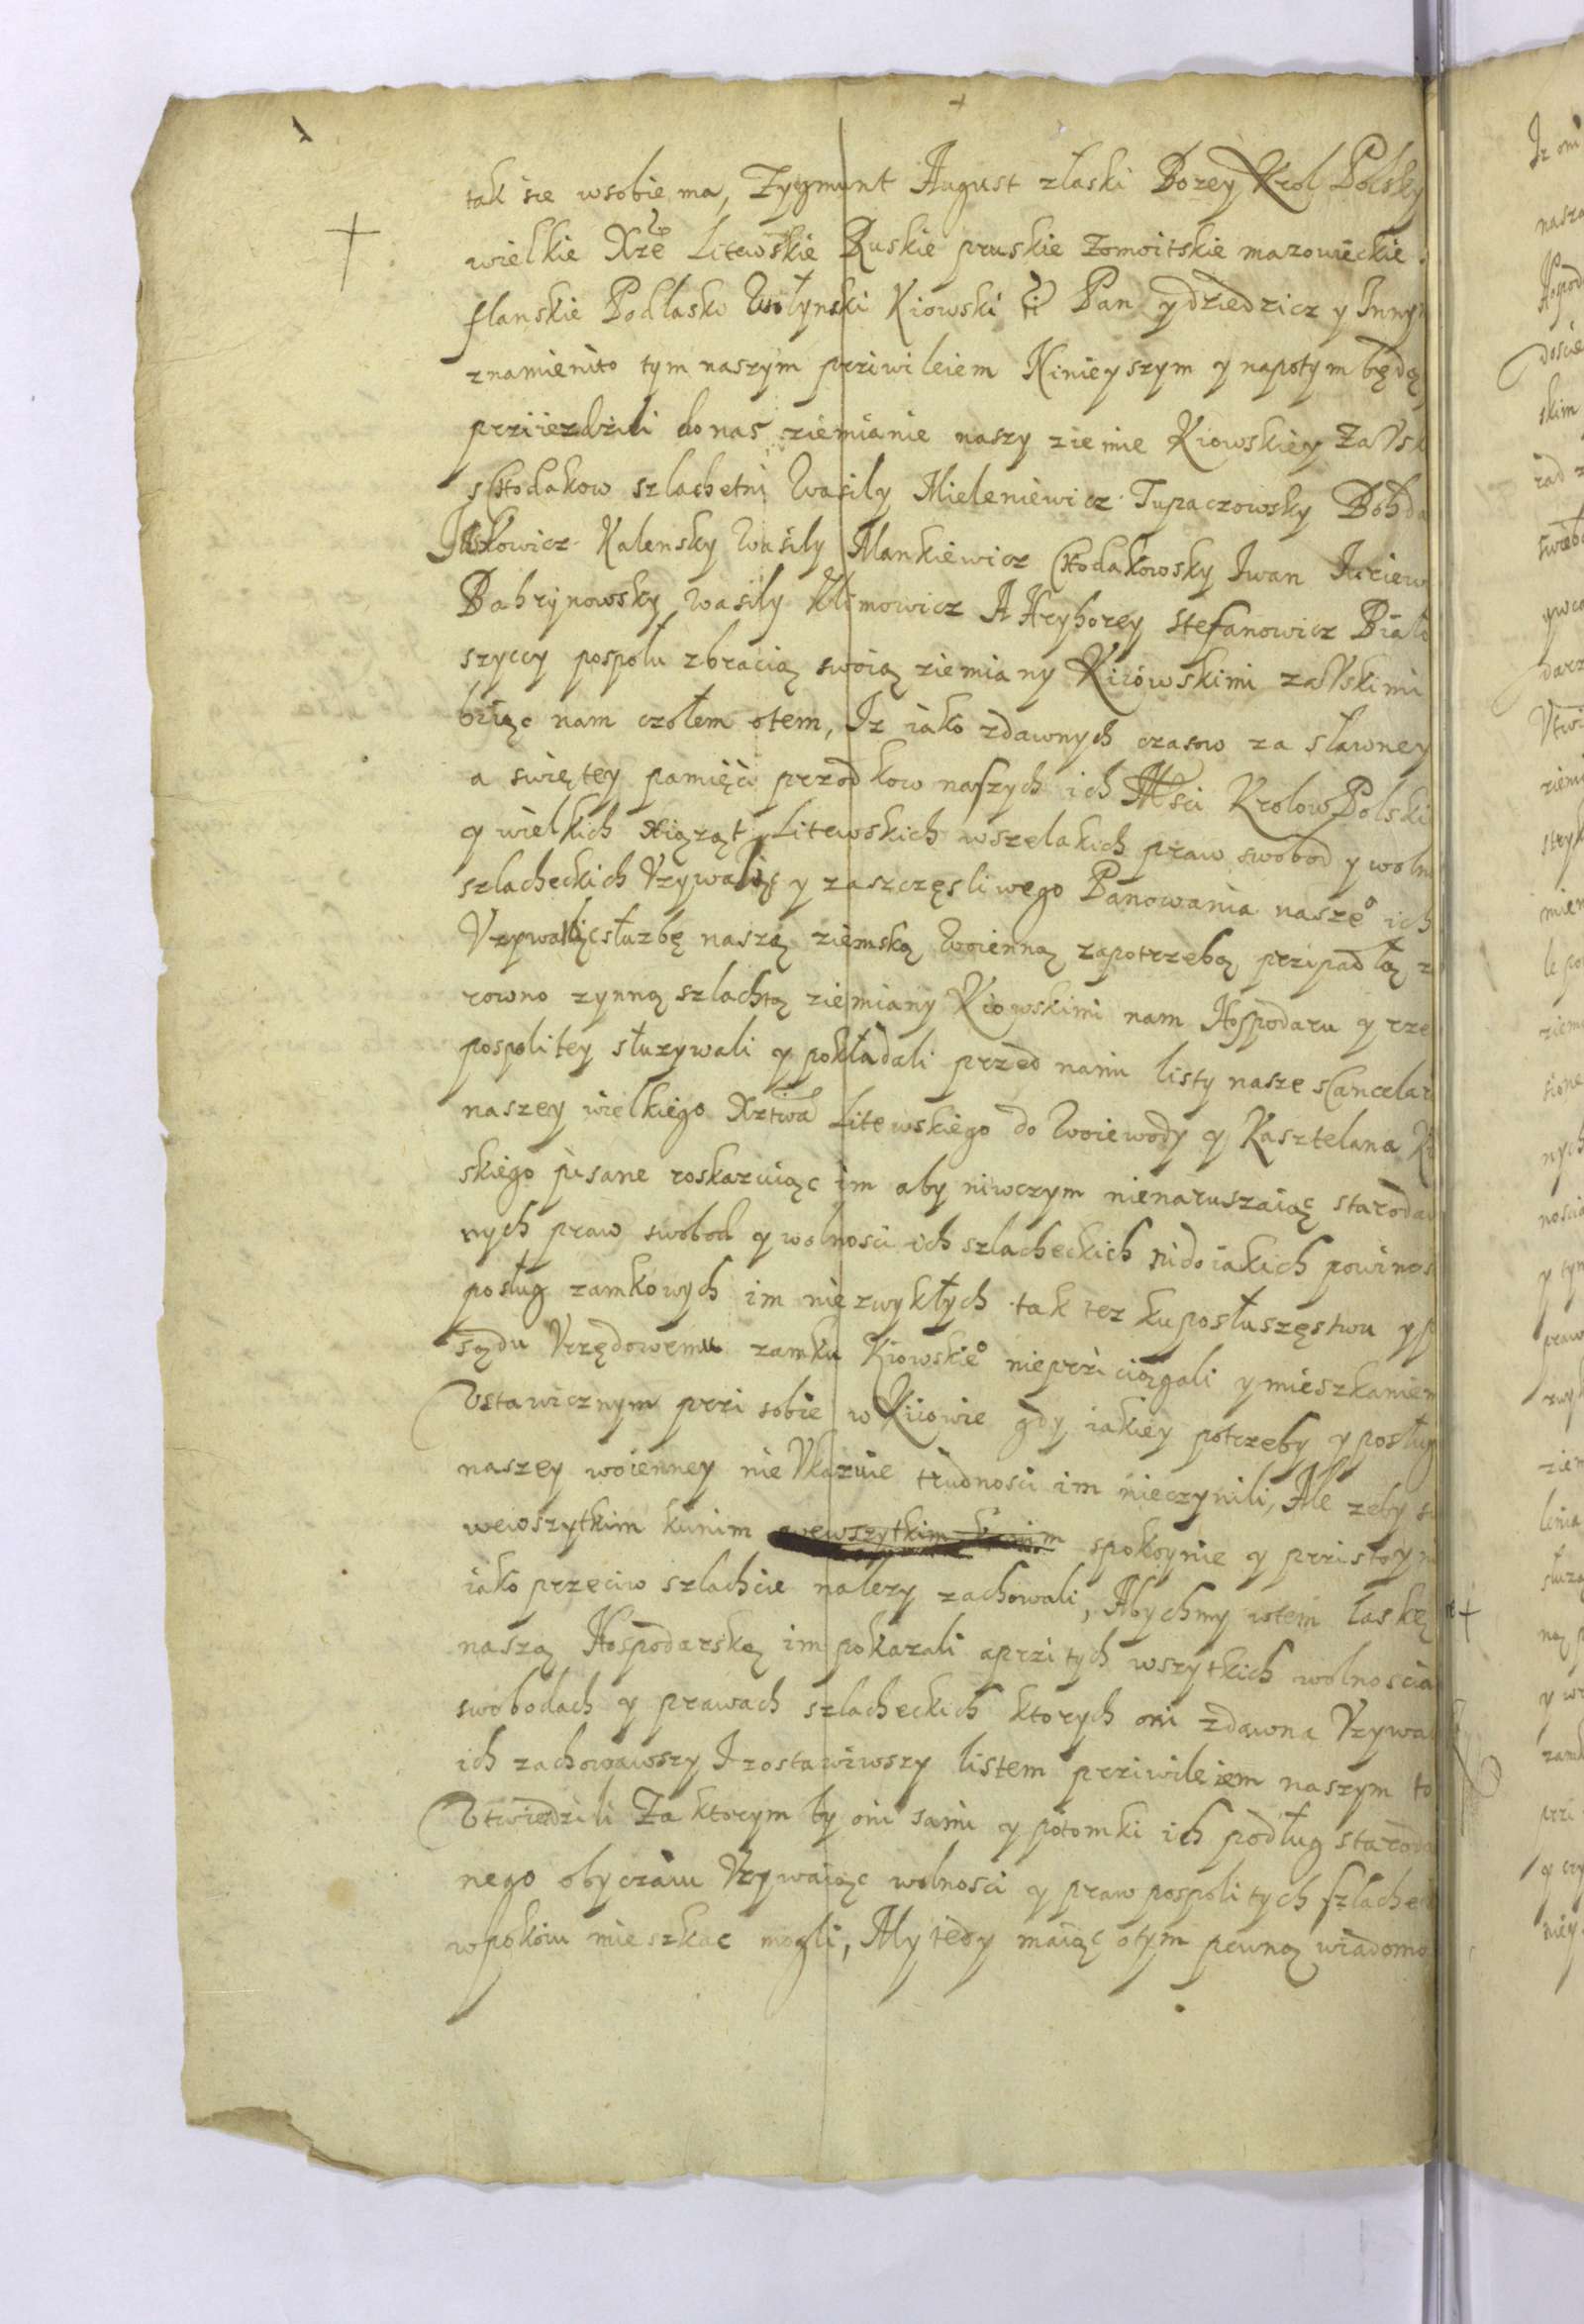 tak sie wsobie ma, Zygmunt August złaski Bozey Krol Polsky
wielkie Xże Litewskie Ruskie pruskie Zomoitskie mazowieckie
flanskie Podlasko Wołynski Kiowski Pan ydziedzicz y Inny
znamienito tym naszym priwileiem Ninieyszym y napotym będą
prziiezdzili donas ziemianie naszy ziemie Kiowskiey ZaVsk
sChodakow szlachetni Wasily Mieleniewicz Tupaczowsky Bohda
Jaskowicz Kalensky Wasily Mankiewicz Chodakowsky Iwan Iuriew
Bahrynowsky Wasily Klimowicz A Hryhorey Stefanowicz Biało
szyccy pospołu zbracią swoią ziemiany Kiiowskimi zaVskimi
biiąc nam czołem otem, Iz iako zdawnych czasow za sławney
a swiętey pamięci przodkow naszych ich Mści Krolow Polski
y wielkich Xiąząt Litewskich wszelakich praw swobod y woln
szlacheckich Vzywalię y zaszczęsliwego Panowania nasze° ich
Vzywaliąc słuzbę naszę ziemską Woienną zapotrzebą pripadłą z
rowno zynną szlachtą ziemiany Kiowskimi nam Hospodaru y rze
pospolitey słuzywali y pokładali przed nami listy nasze sCancelari
naszey wielkiego Xztwa Litewskiego do Woiewody y Kasztelana Ki
skiego pisane roskazuiąc im aby niwczym nienaruszaiąc starodaw
nych praw swobod y wolnosci ich szlacheckich nidoiakich powinos
posług zamkowych im niezwykłych tak tez kuposłuszęstwu yp
sądu Vrzędowemu zamku Kiowskie° niepriciągali ymieszkaniem
Vstawicznym pri sobie w Kiiowie gdy iakiey potrzeby y posług
naszey woienney nie Vkazuie trudnosci im nieczynili, Ale zeby si
wewszytkim kunim wewszytkim kunim spokoynie y pristoyni
iako przeciw szlachcie nalezy zachowali, Abychmy wtem łaskę
naszą Hospodarską im pokazali apri tych wszytkich wolnoscia
swobodach y prawach szlacheckich ktorych oni zdawna Vzywal
ich zachowawszy I zostawiwszy listem priwileiem naszym to
Vtwierdzili Za ktorym by oni sami y potomki ich podług staroda
nego obyczaiu Vzywaiąc wolnosci y praw pospolitych szlachec
wpokoiu mieszkac mogli, My tedy maiąc otym pewną wiadomo